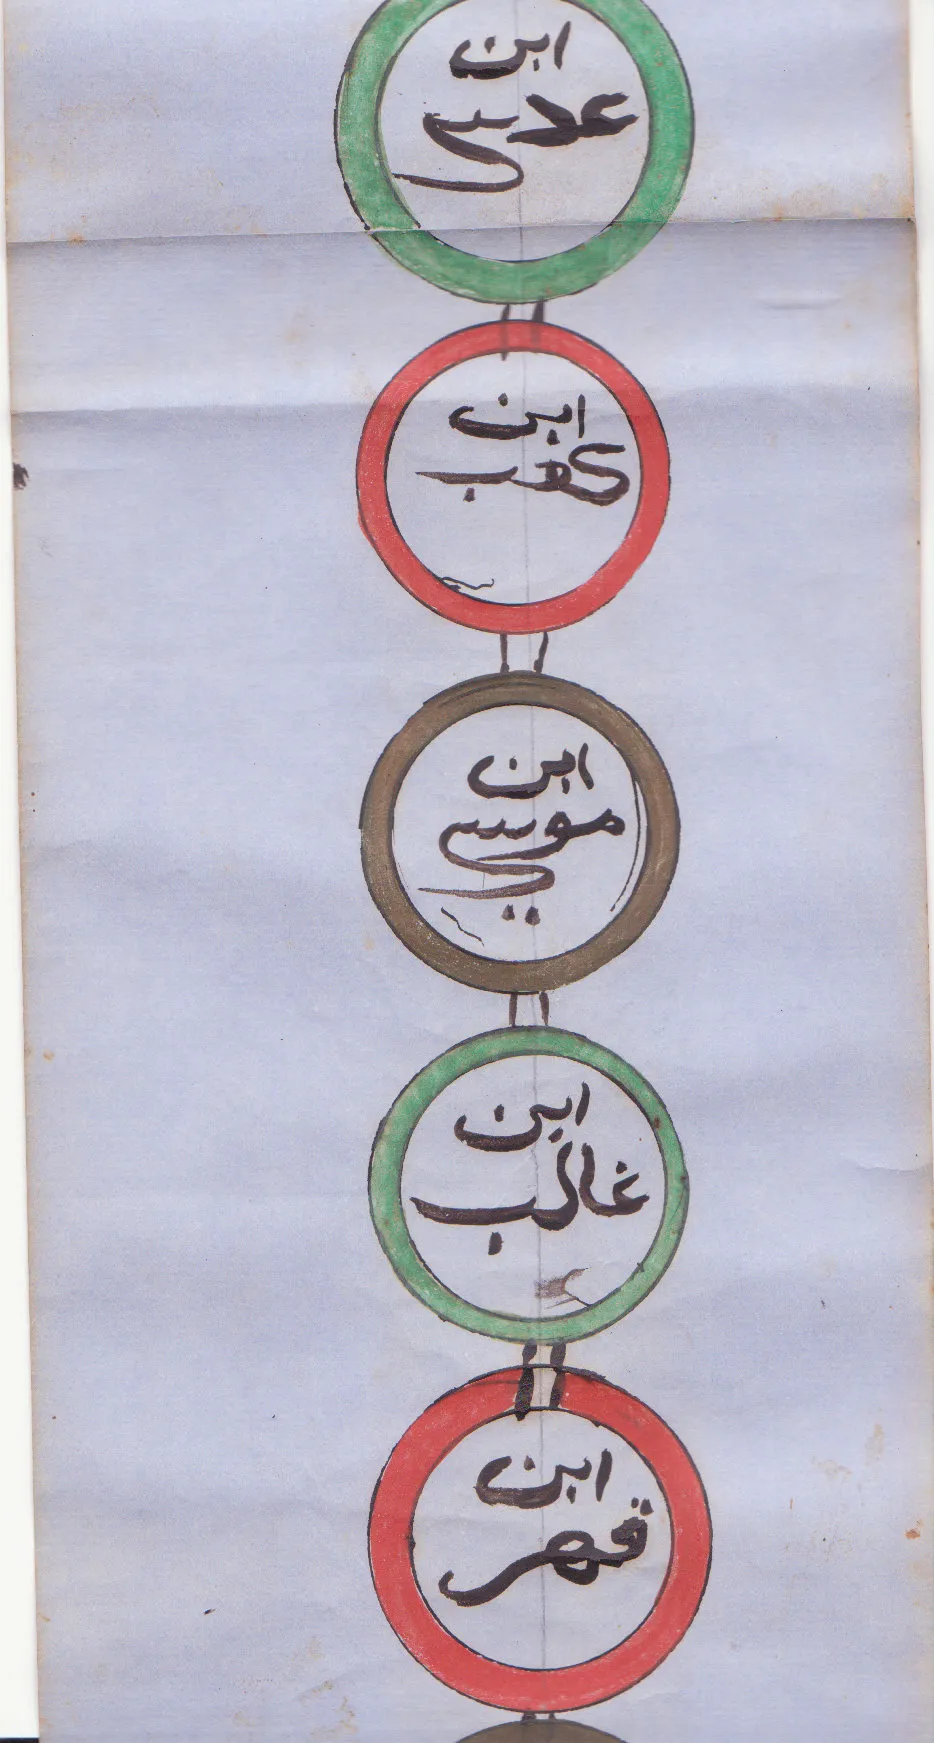 ابن
عدسي
ابن
كعب
ابن
موسي
ابن
غالب
ابن
قهر